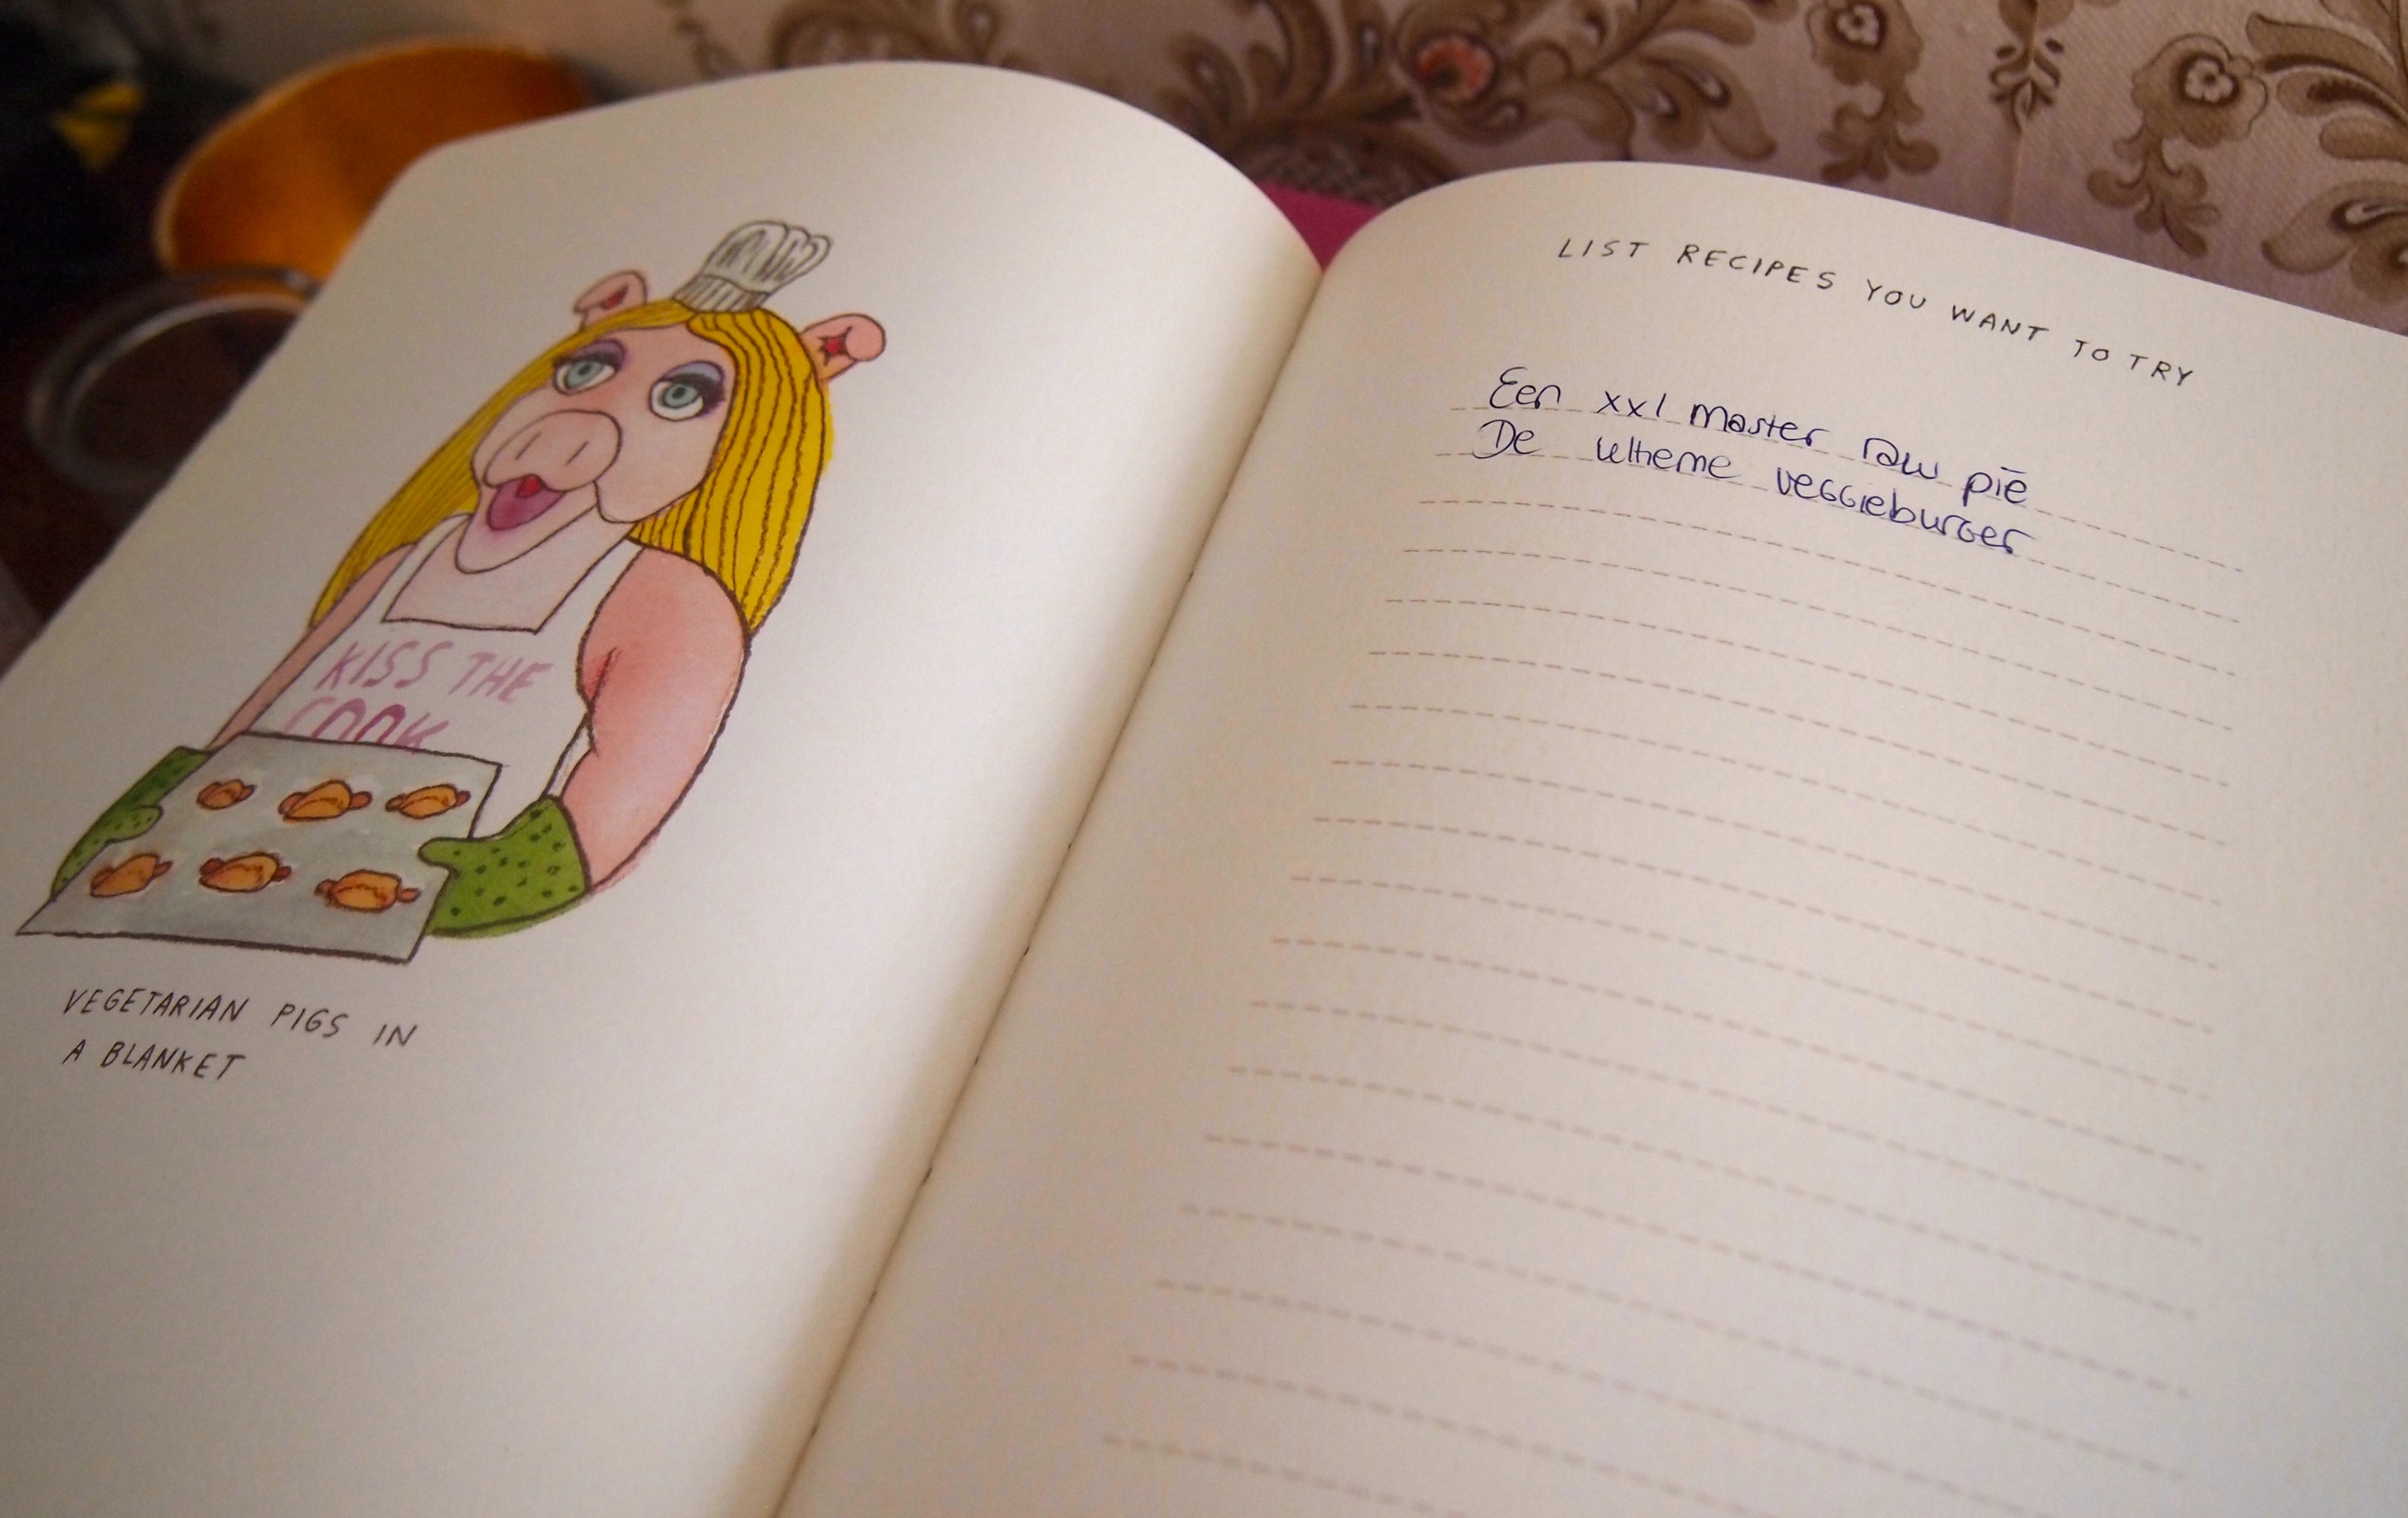 KISS THE
COOK
VEGETARIAN PIGS IN
A BLANKET
LIST RECIPES YOU WANT TO TRY
Een xxl master raw pie
De ultieme veggieburger